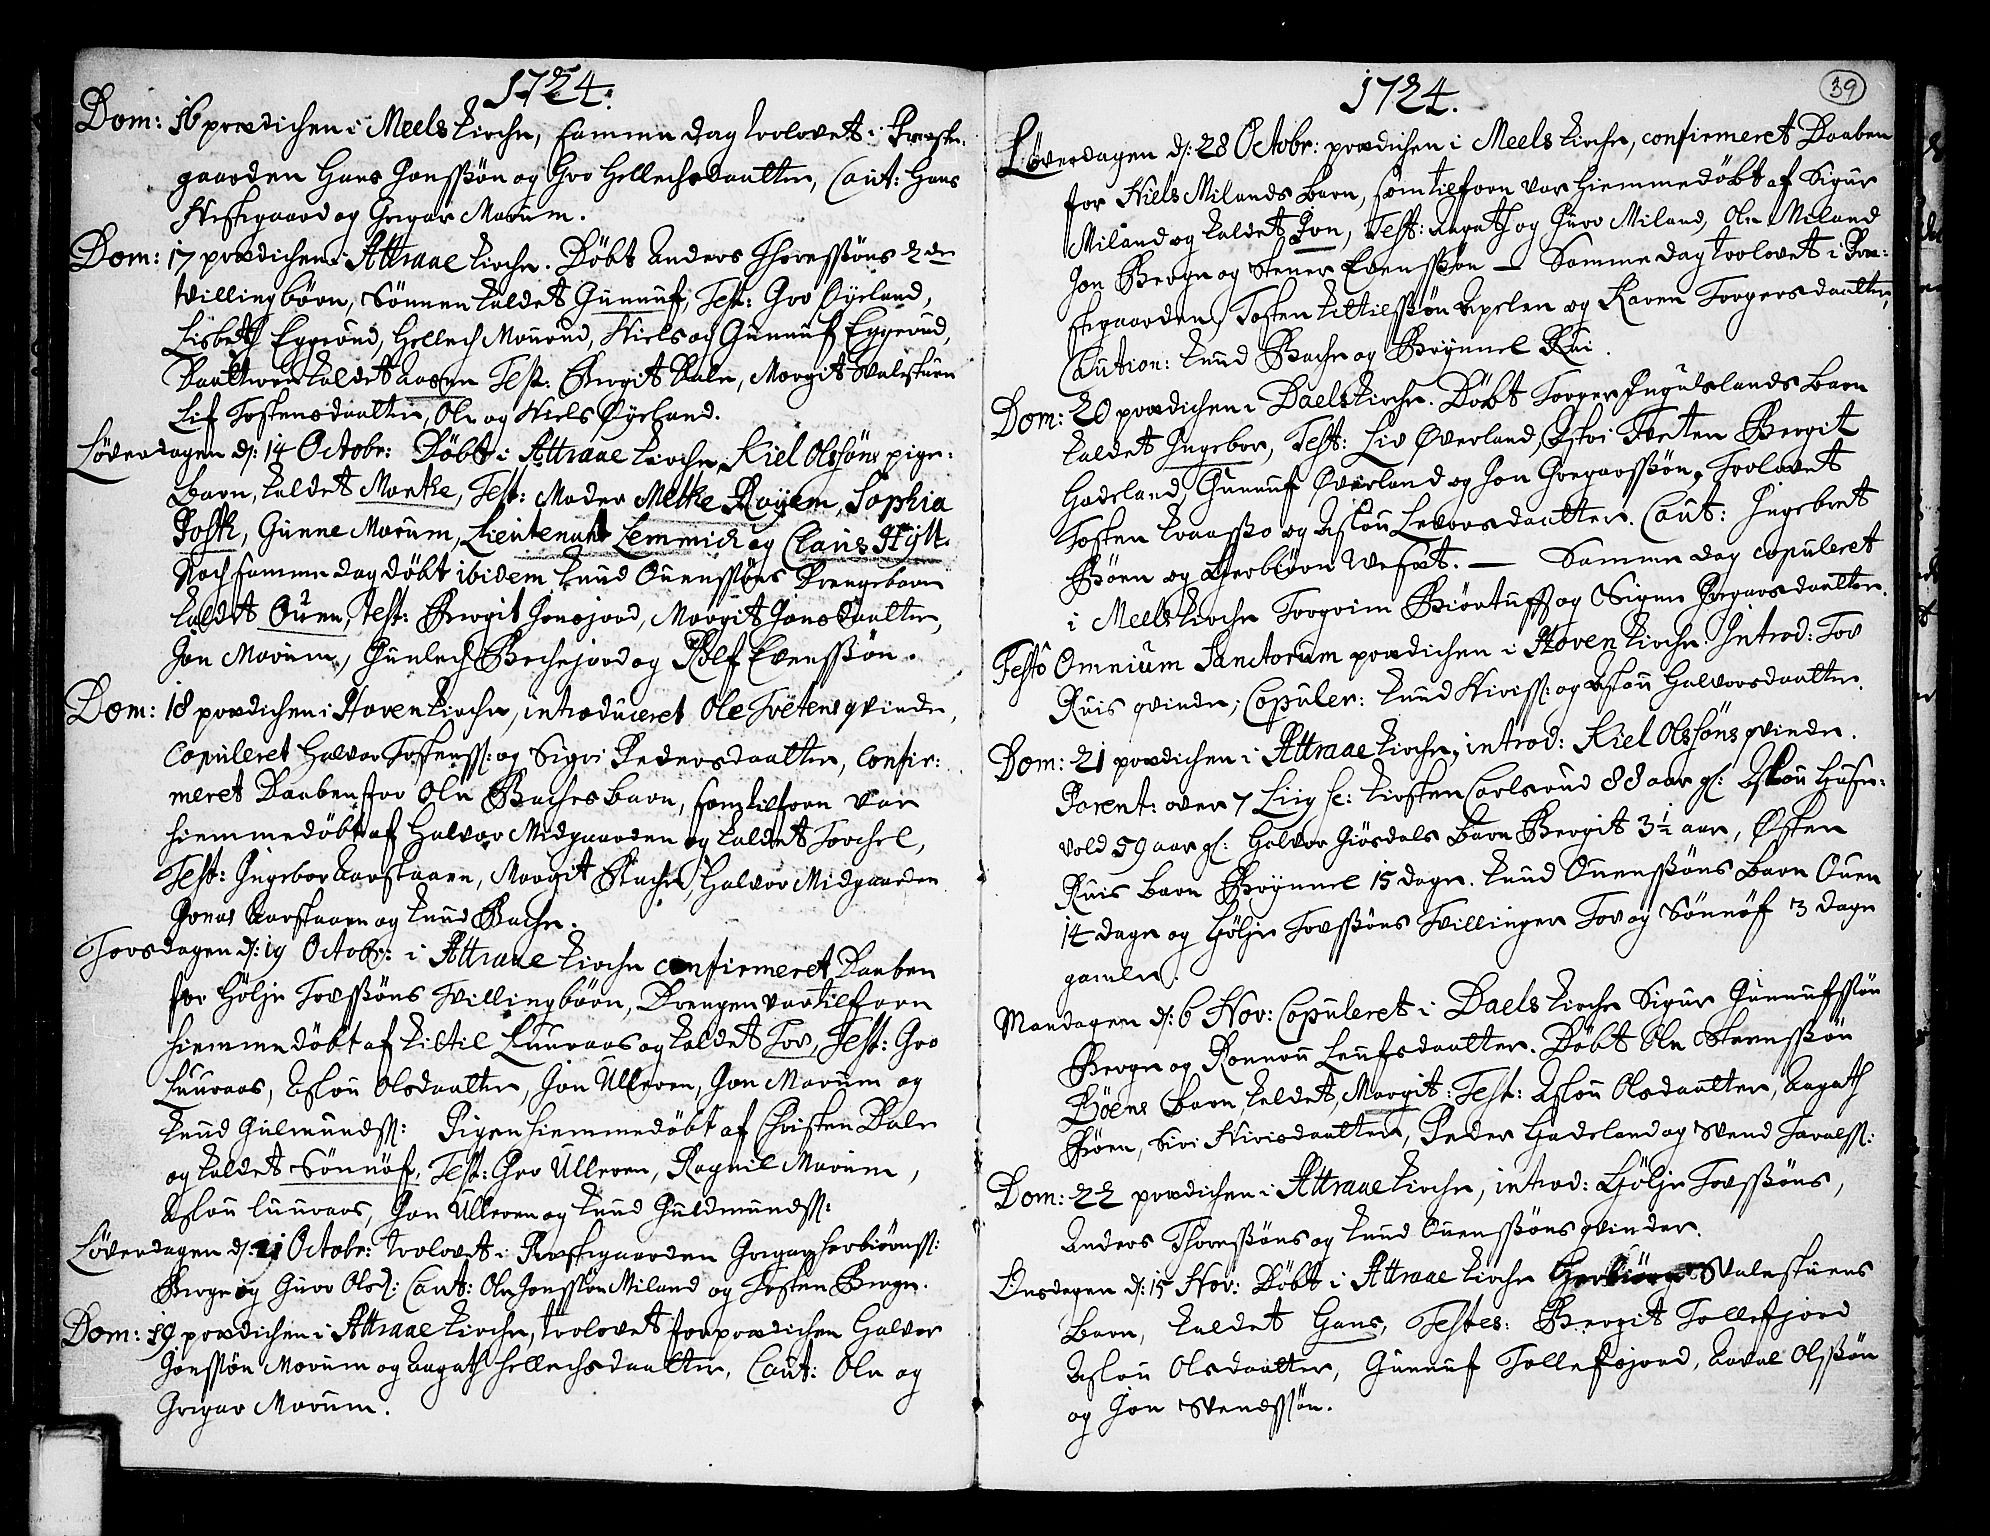 1724.
Dom: 16 prædichen i Meels Kirche, samme dag trolovet i Præste-
gaarden Hans Jonssøn og Gro Hellechsdaatter, Caut: Hans
og Gregar Marum.
Dom: 17 prædichen i Attraae Kirche. Døbt Anders Thoressøns 2de
tvillingbørn, Sønnen kaldet Gunnuf, Test: Gro Øyeland,
Lisbeth Eggerud, Hellech Mourud, Niels og Gunnuf Eggerud,
Daatteren kaldet Aasne Test: Bergit Dale, Margit Valestuen
Lif Tostensdaatter, Ole og Niels Øyeland.
Løverdagen d: 14 Octobr: Døbt i Attraae Kirche Kiel Olssøns pige-
barn, kaldet Marthe, Test: Mader Mette Royem, Sophia
Post, Gunne Marum, Lieutenant Lemmich og Claus Hytt.
Noch samme dag døbt ibidem Knud Ouenssøns Drengebarn
kaldet Ouen, Test: Bergit Gonsjord, Margit Jonsdaatter,
Jon Marum, Gunlech Bechejord og Rolf Evenssøn.
Dom: 18 prædichen i Hoven Kirche, introduceret Ole Tvetens qvinde,
Copuleret Halvor Tostenss: og Sigri Pedersdaatter, Confir-
meret Daaben for Ole Baches barn, som tilforn var
hiemmedøbt af Halvor Midgaarden og kaldet Torchel,
Test: Ingebor Aarskaaen, Margit Bache, Halvor Midgaarden
Jonas Aarskaaen og Knud Bache.
Torsdagen d: 19 Octobr: i Attraae Kirche confirmeret Daaben
for Høljе Tovssøns Tvillingbørn, Drengen var tilforn
hiemmedøbt af Kittil Luuraas og kaldet Tov, Test: Gro
Luuraas, Aslou Olsdaatter, Jon Ulleren, Jon Marum og
Knud Gulmundss: Pigen hiemmedøbt af Christen Dale
og kaldet Sønnøf, Test: Gro Ulleren, Ragnil Marum,
Aslou Luuraas, Jon Ulleren og Knud Guldmundss:
Løverdagen d: 21 Octobr: trolovet i Præstegaarden Gregar Herbiørnss:
Berge og Guro Olsd: Caut: Ole Jonssøn Miland og Tosten Berge.
Dom: 19 prædichen i Attraae Kirche, trolovet for prædichen Halvor
Jonssøn Marum og Aagath Hellechsdaatter, Caut: Ole og
Gregar Marum.
1724.
39
Løverdagen d: 28 Octobr: prædichen i Meels Kirche, confirmeret Daaben
for Niels Milands barn, som tilforn var hiemmedøbt af Sigur
Miland og kaldet Jon, Test: Aagath og Guro Miland, Ole Miland
Jon Berge og Stener Evenssøn — Samme dag trolovet i Præ-
stegaarden Tosten Kittilssøn Apelen og Karen Torgersdaatter,
Caution: Knud Bache og Brynnel Rui.
Dom: 20 prædichen i Daels Kirche. Døbt Torger Ingulslands barn
kaldet Ingebor, Test: Liv Øverland, Astri Tveten Bergit
Hadeland, Gunnuf Øverland og Jon Gregarssøn, Trolovet
Tosten Kraasso og Aslou Levorsdaatter. Caut: Ingebret
Bøen og Herbiørn — Samme dag copuleret
i Meels Kirche Torgrim Biørtuft og Signe Gregarsdaatter.
Festo Omnium Sanctorum prædichen i Hoven Kirche. Introd: Tov
Ruis qvinde; Copuler: Knud Niriss: og Aslou Halvorsdaatter.
Dom: 21 prædichen i Attraae Kirche, introd: Kiel Olssøns qvinde.
Parent: over 7 Liig sc: Kirsten Carlsrud 88 aar gl: Aslou Huse-
vold 59 aar gl: Halvor Giøsdals Barn Bergit 3½ aar, Østen
Ruis barn Brynnel 15 dage. Knud Ouenssøns Barn Ouen
14 dage og Høljе Tovssøns Tvillinger Tov og Sønnøf 3 dage
gamle.
Mandagen d: 6 Nov: Copuleret i Daels Kirche Sigur Gunnufssøn
Berge og Ronnou Leufsdaatter. Døbt Ole Stenssøn
Bøens Barn kaldet, Margit: Test: Aslou Olsdaatter, Aagath
Bøen, Siri Nirisdaatter, Peder Hadeland og Svend Taralss:
Dom: 22 prædichen i Attraae Kirche, introd: Høljе Tovssøns,
Anders Thoressøns og Knud Ouenssøns qvinder.
Onsdagen d: 15 Nov: Døbt i Attraae Kirche Valestuens
Barn, kaldet Hans, Testes: Bergit Tollefjord
Aslou Olsdaatter, Gunnuf Tollefsjord, Aavel Olssøn
og Jon Svendssøn.